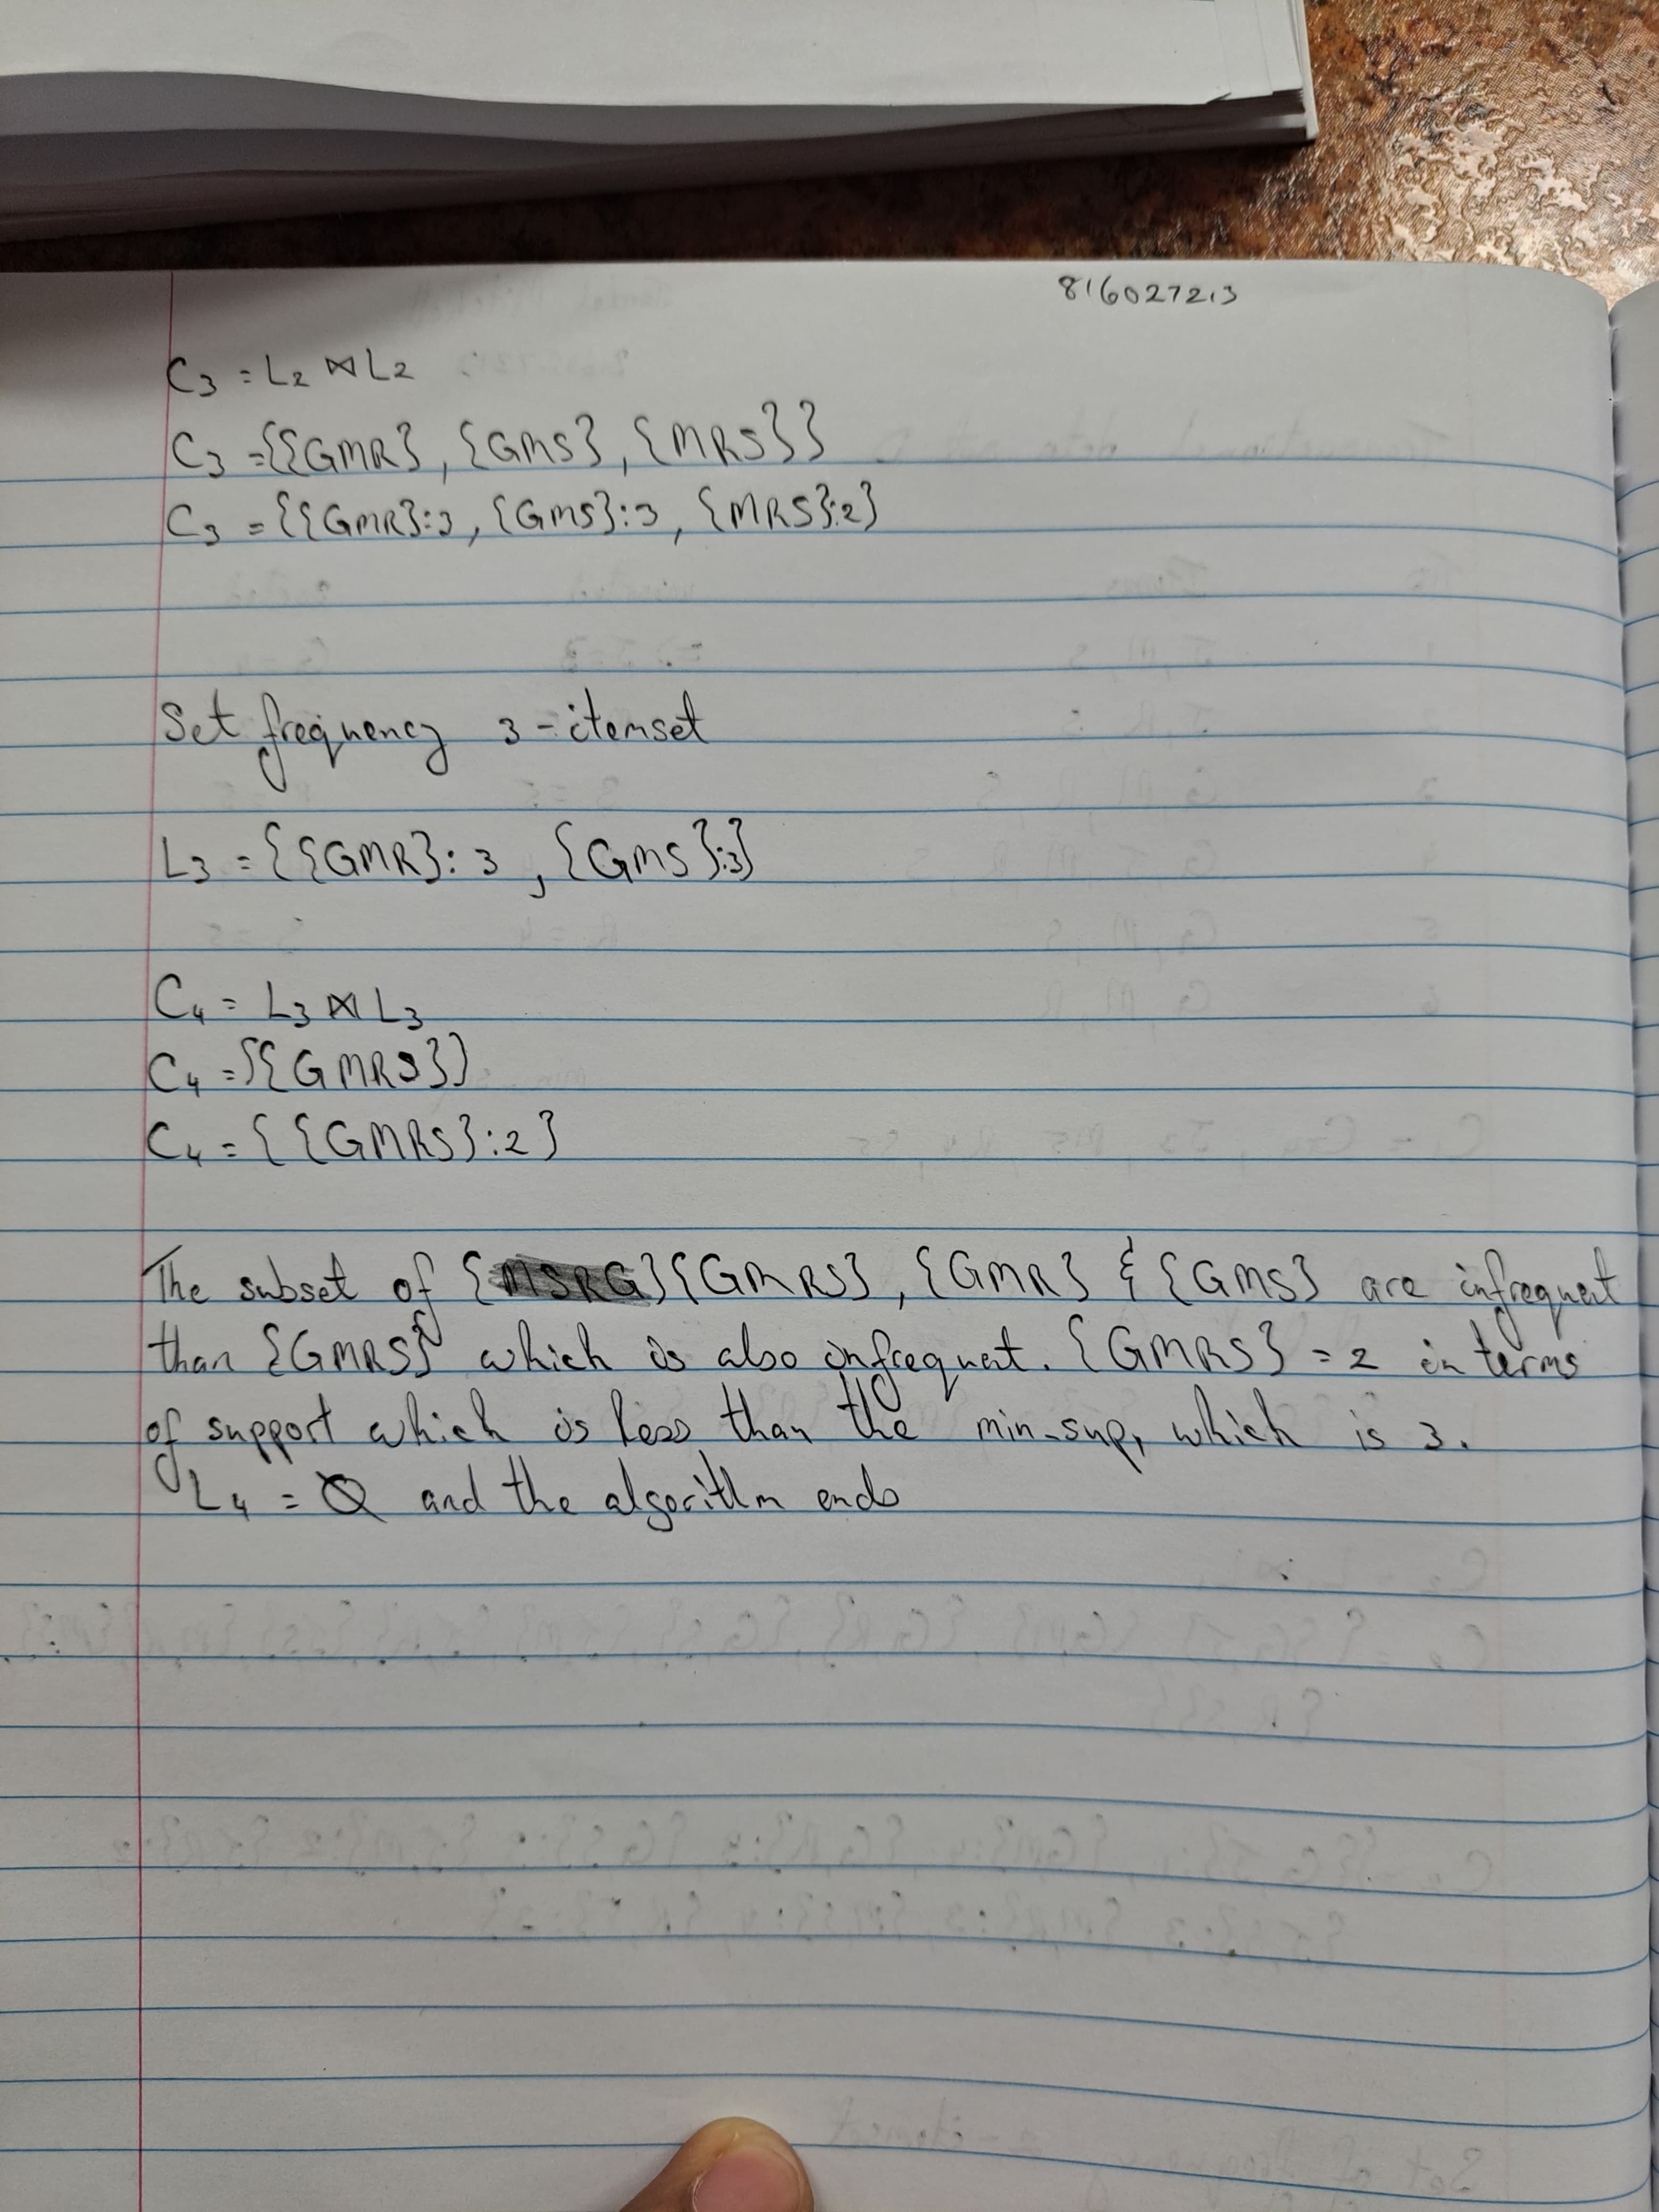 816027213
C3 = L2 ⋈ L2
C3 = {{GMR}, {GMS}, {MRS}}
C3 = {{GMR}:3, {GMS}:3, {MRS}:2}
Set frequency 3-itemset
L3 = {{GMR}: 3, {GMS}:3}
C4 = L3 ⋈ L3
C4 = {{GMRS}}
C4 = {{GMRS}:2}
The subset of {MSRG}{GMRS}, {GMR} & {GMS} are infrequent
than {GMRS} which is also infrequent. {GMRS} = 2 in terms
of support which is less than the min-sup, which is 3.
L4 = Ø and the algorithm ends